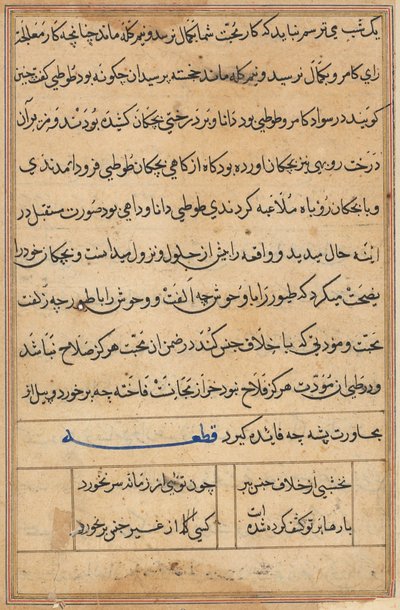 یک شب می ترسم نباید که کار محبت شما بکمال نرسد و نیم کله ماند چنانچه کار معالجهٔ
رای کامرو بکمال نرسید و نیم کله ماند خجسته پرسید آن چگونه بود طوطی گفت چنین
گویند در سواد کامرو طوطی بود دانا و بر درختی بچکان کشیده بودند و زیر آن
درخت روبهی نیز بچکان آورده بود کاه از کاهی بچکان طوطی فرود آمدندی
و با بچکان روباه ملاعبه کردندی طوطی دانا و داهی بود صورت مستقبل در
آینه حال میدید و واقعه را پیش از حلول و نزول میدانست و بچکان خود را
نصیحت میکرد که طیور را با وحوش چه الفت و وحوش را با طیور چه زلفت
محبت و مودتی که با خلاف جنس کنند در ضمن آن محبت هرکز صلاح نباشد
و در طی آن مودت هرکز فلاح نبود خر از مجانست فاخته چه برخورد و پیل از
مجاورت پشه چه فایده کیرد قطعه
نخشبی از خلاف جنس ببر چون توئی از زمانه سر نخورد
بارها بر تو کشف کرده شده است کسی از غیر جنس بر نخورد